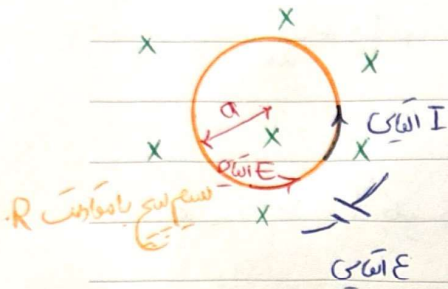 a
I القایی
E القایی
سیم پیچ با مقاومت R.
ε القایی